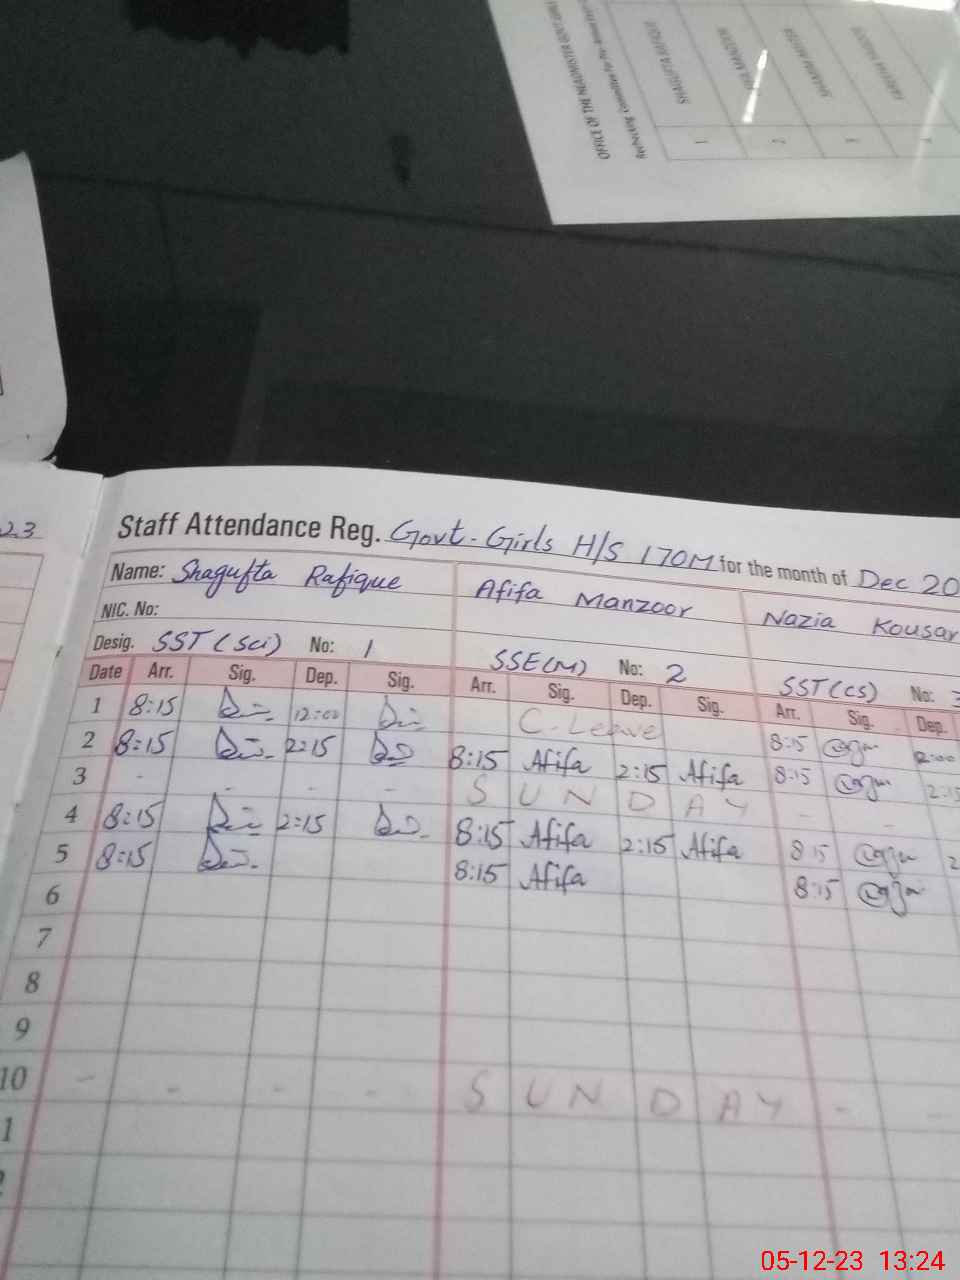 OFFICE OF THE HEADMISTER GOVT.GIRLS
SHAGUFTA RAFIQUE
1
2
3
23
Staff Attendance Reg. Govt. Girls H/S 170M for the month of Dec 20
Name: Shagufta Rafique Afifa Manzoor Nazia Kousar
NIC. No:
Desig. SST (Sci) No: 1 SSE(M) No: 2 SST(CS) No: 3
Date Arr. Sig. Dep. Sig. Arr. Sig. Dep. Sig. Arr. Sig. Dep.
1 8:15 12:00 C-Leave 8:15 12:00
2 8:15 2:15 8:15 Afifa 2:15 Afifa 8:15 2:15
3 - - - - SUNDAY - -
4 8:15 2:15 8:15 Afifa 2:15 Afifa 8:15 2
5 8:15 8:15 Afifa 8:15
6
7
8
9
10 - - - - SUNDAY - -
1
05-12-23 13:24